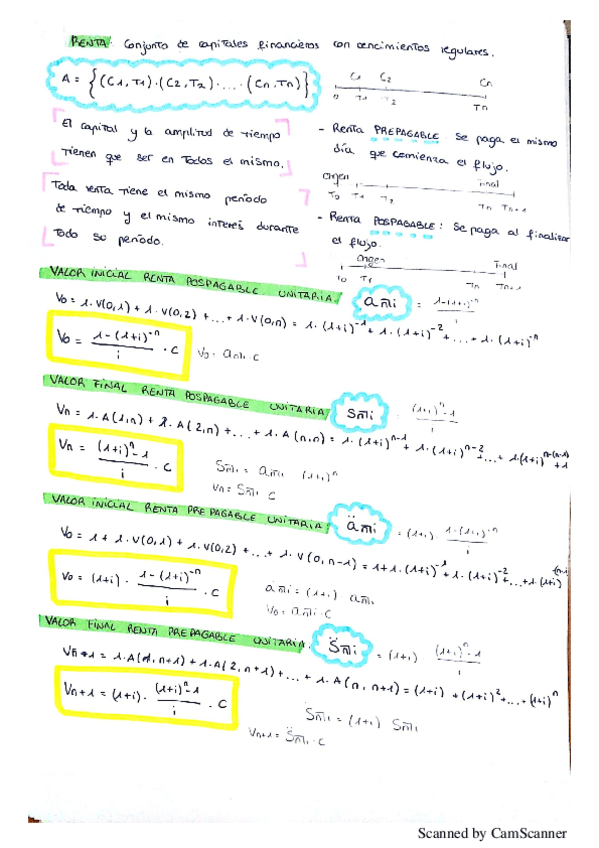 RENTA: Conjunto de capitales financieros con vencimientos regulares.
A = {(C1,T1)·(C2,T2)·....(Cn,Tn)}
C1 C2 Cn
0 T1 T2 Tn
El capital y la amplitud de tiempo
tienen que ser en todos el mismo.
Toda renta tiene el mismo período
de tiempo y el mismo interés durante
todo su período.
- Renta PREPAGABLE: se paga el mismo
día que comienza el flujo.
origen final
T0 T1 Tn Tn+1
- Renta POSPAGABLE: se paga al finalizar
el flujo.
origen final
T0 T1 Tn Tn+1
VALOR INICIAL RENTA POSPAGABLE UNITARIA: an̅|i = 1-(1+i)^-n / i
V0 = 1·V(0,1) + 1·V(0,2) + ...+ 1·V(0,n) = 1·(1+i)^-1 + 1·(1+i)^-2 + ... + 1·(1+i)^-n
V0 = 1-(1+i)^-n / i · C
V0 = an̅|i · C
VALOR FINAL RENTA POSPAGABLE UNITARIA: Sn̅|i = (1+i)^n-1 / i
Vn = 1·A(1,n) + 1·A(2,n) + ...+ 1·A(n,n) = 1·(1+i)^n-1 + 1·(1+i)^n-2 + ...+ 1·(1+i)^n-(n-1) + 1
Vn = (1+i)^n-1 / i · C
Sn̅|i = an̅|i (1+i)^n
Vn = Sn̅|i C
VALOR INICIAL RENTA PREPAGABLE UNITARIA: än̅|i = (1+i)· 1-(1+i)^-n / i
V0 = 1 + 1·V(0,1) + 1·V(0,2) + ...+ 1·V(0,n-1) = 1+1·(1+i)^-1 + 1·(1+i)^-2 + ...+ 1(1+i)^-(n-1)
V0 = (1+i) · 1-(1+i)^-n / i · C
än̅|i = (1+i) an̅|i
V0 = än̅|i · C
VALOR FINAL RENTA PREPAGABLE UNITARIA: S̈n̅|i = (1+i) (1+i)^n-1 / i
Vn+1 = 1·A(1,n+1) + 1·A(2,n+1) + ... + 1·A(n,n+1) = (1+i) + (1+i)^2 + ... + (1+i)^n
Vn+1 = (1+i) · (1+i)^n-1 / i · C
S̈n̅|i = (1+i) Sn̅|i
Vn+1 = S̈n̅|i · C
Scanned by CamScanner